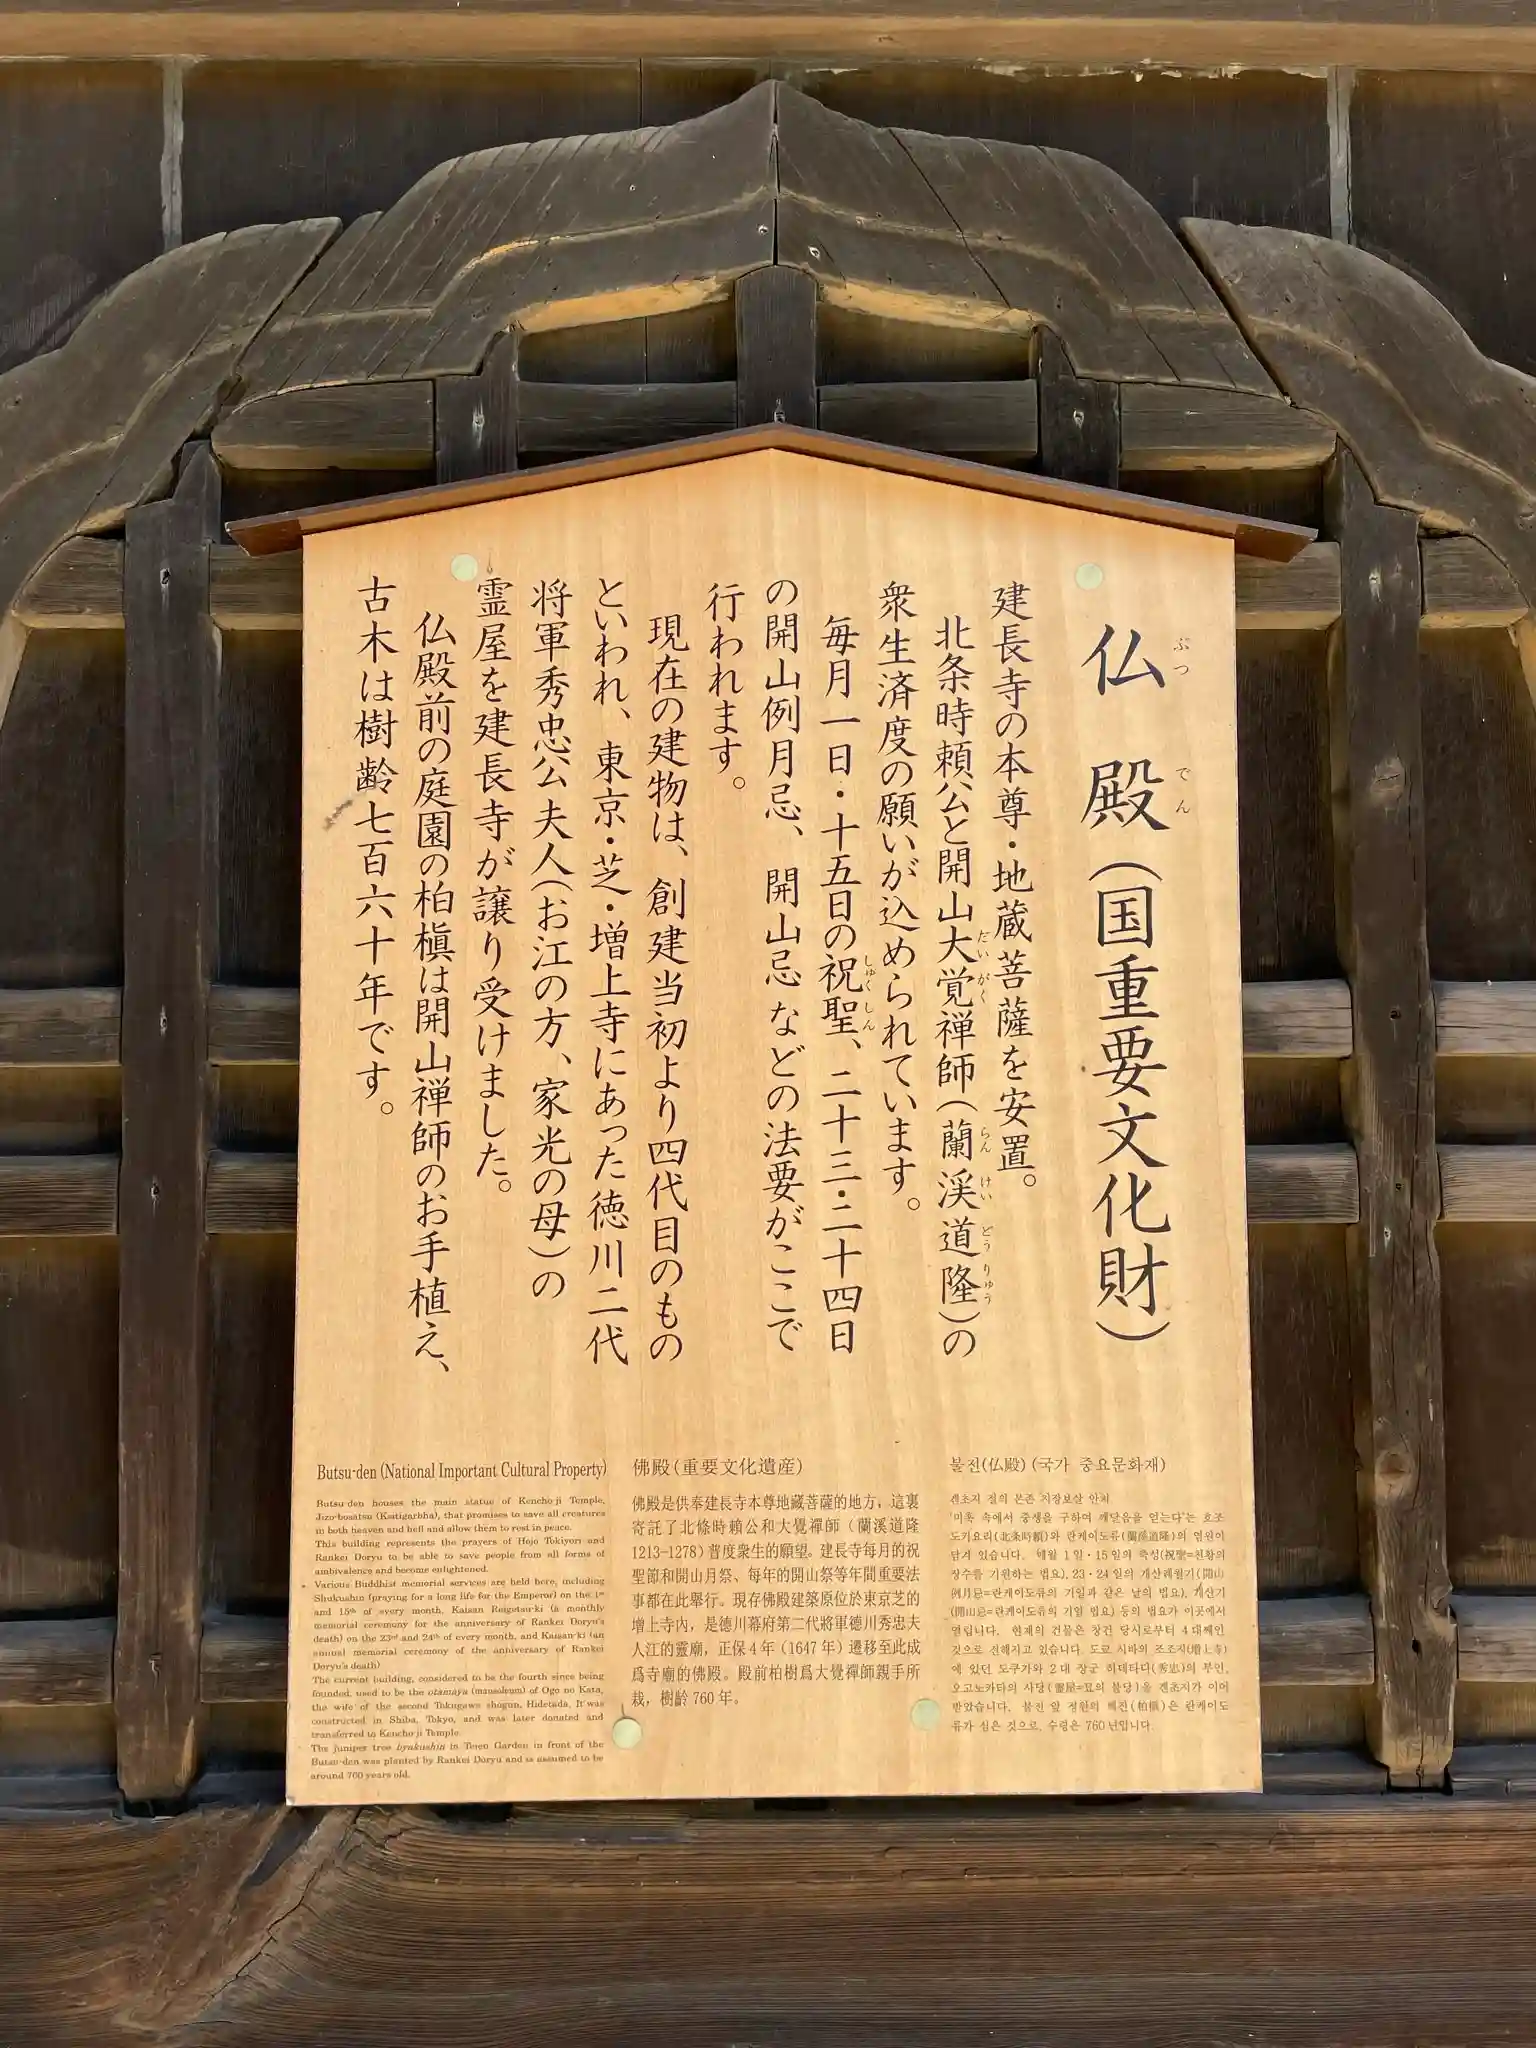 仏殿(国重要文化財)
ぶつでん
建長寺の本尊・地蔵菩薩を安置。
北条時頼公と開山大覚禅師(蘭渓道隆)の
だいがく
らんけいどうりゅう
衆生済度の願いが込められています。
毎月一日・十五日の祝聖、二十三・二十四日
しゅくしん
の開山例月忌、開山忌などの法要がここで
行われます。
現在の建物は、創建当初より四代目のもの
といわれ、東京・芝・増上寺にあった徳川二代
将軍秀忠公夫人(お江の方、家光の母)の
霊屋を建長寺が譲り受けました。
仏殿前の庭園の柏槇は開山禅師のお手植え、
古木は樹齢七百六十年です。
Butsu-den (National Important Cultural Property)
Butsu-den houses the main statue of Kencho-ji Temple,
Jizo-bosatsu (Ksitigarbha), that promises to save all creatures
in both heaven and hell and allow them to rest in peace.
This building represents the prayers of Hojo Tokiyori and
Rankei Doryu to be able to save people from all forms of
ambivalence and become enlightened.
Various Buddhist memorial services are held here, including
Shukushin (praying for a long life for the Emperor) on the 1st
and 15th of every month, Kaisan Reigetsu-ki (a monthly
memorial ceremony for the anniversary of Rankei Doryu's
death) on the 23rd and 24th of every month, and Kaisan-ki (an
annual memorial ceremony of the anniversary of Rankei
Doryu's death)
The current building, considered to be the fourth since being
founded, used to be the otamaya (mausoleum) of Ogo no Kata,
the wife of the second Tokugawa shogun, Hidetada. It was
constructed in Shiba, Tokyo, and was later donated and
transferred to Kencho-ji Temple.
The juniper tree byakushin in Teien Garden in front of the
Butsu-den was planted by Rankei Doryu and is assumed to be
around 760 years old.
佛殿(重要文化遺産)
佛殿是供奉建長寺本尊地藏菩薩的地方，這裏
寄託了北條時賴公和大覺禪師（蘭溪道隆
1213-1278）普度衆生的願望。建長寺每月的祝
聖節和開山月祭、每年的開山祭等年間重要法
事都在此舉行。現存佛殿建築原位於東京芝的
增上寺內，是德川幕府第二代將軍德川秀忠夫
人江的靈廟，正保4年（1647年）遷移至此成
爲寺廟的佛殿。殿前柏樹爲大覺禪師親手所
栽，樹齡760年。
불전(仏殿)(국가 중요문화재)
겐초지 절의 본존 지장보살 안치
'미혹 속에서 중생을 구하여 깨달음을 얻는다'는 호조
도키요리(北条時頼)와 란케이도류(蘭渓道隆)의 염원이
담겨 있습니다. 매월 1일・15일의 축성(祝聖=천황의
장수를 기원하는 법요), 23・24일의 개산레월기(開山
例月忌=란케이도류의 기일과 같은 날의 법요), 개산기
(開山忌=란케이도류의 기일 법요) 등의 법요가 이곳에서
열립니다. 현재의 건물은 창건 당시로부터 4대째인
것으로 전해지고 있습니다. 도쿄 시바의 조조지(増上寺)
에 있던 도쿠가와 2대 장군 히데타다(秀忠)의 부인,
오고노카타의 사당(霊屋=묘의 불당)을 겐초지가 이어
받았습니다. 불전 앞 정원의 백진(柏槇)은 란케이도
류가 심은 것으로, 수령은 760년입니다.